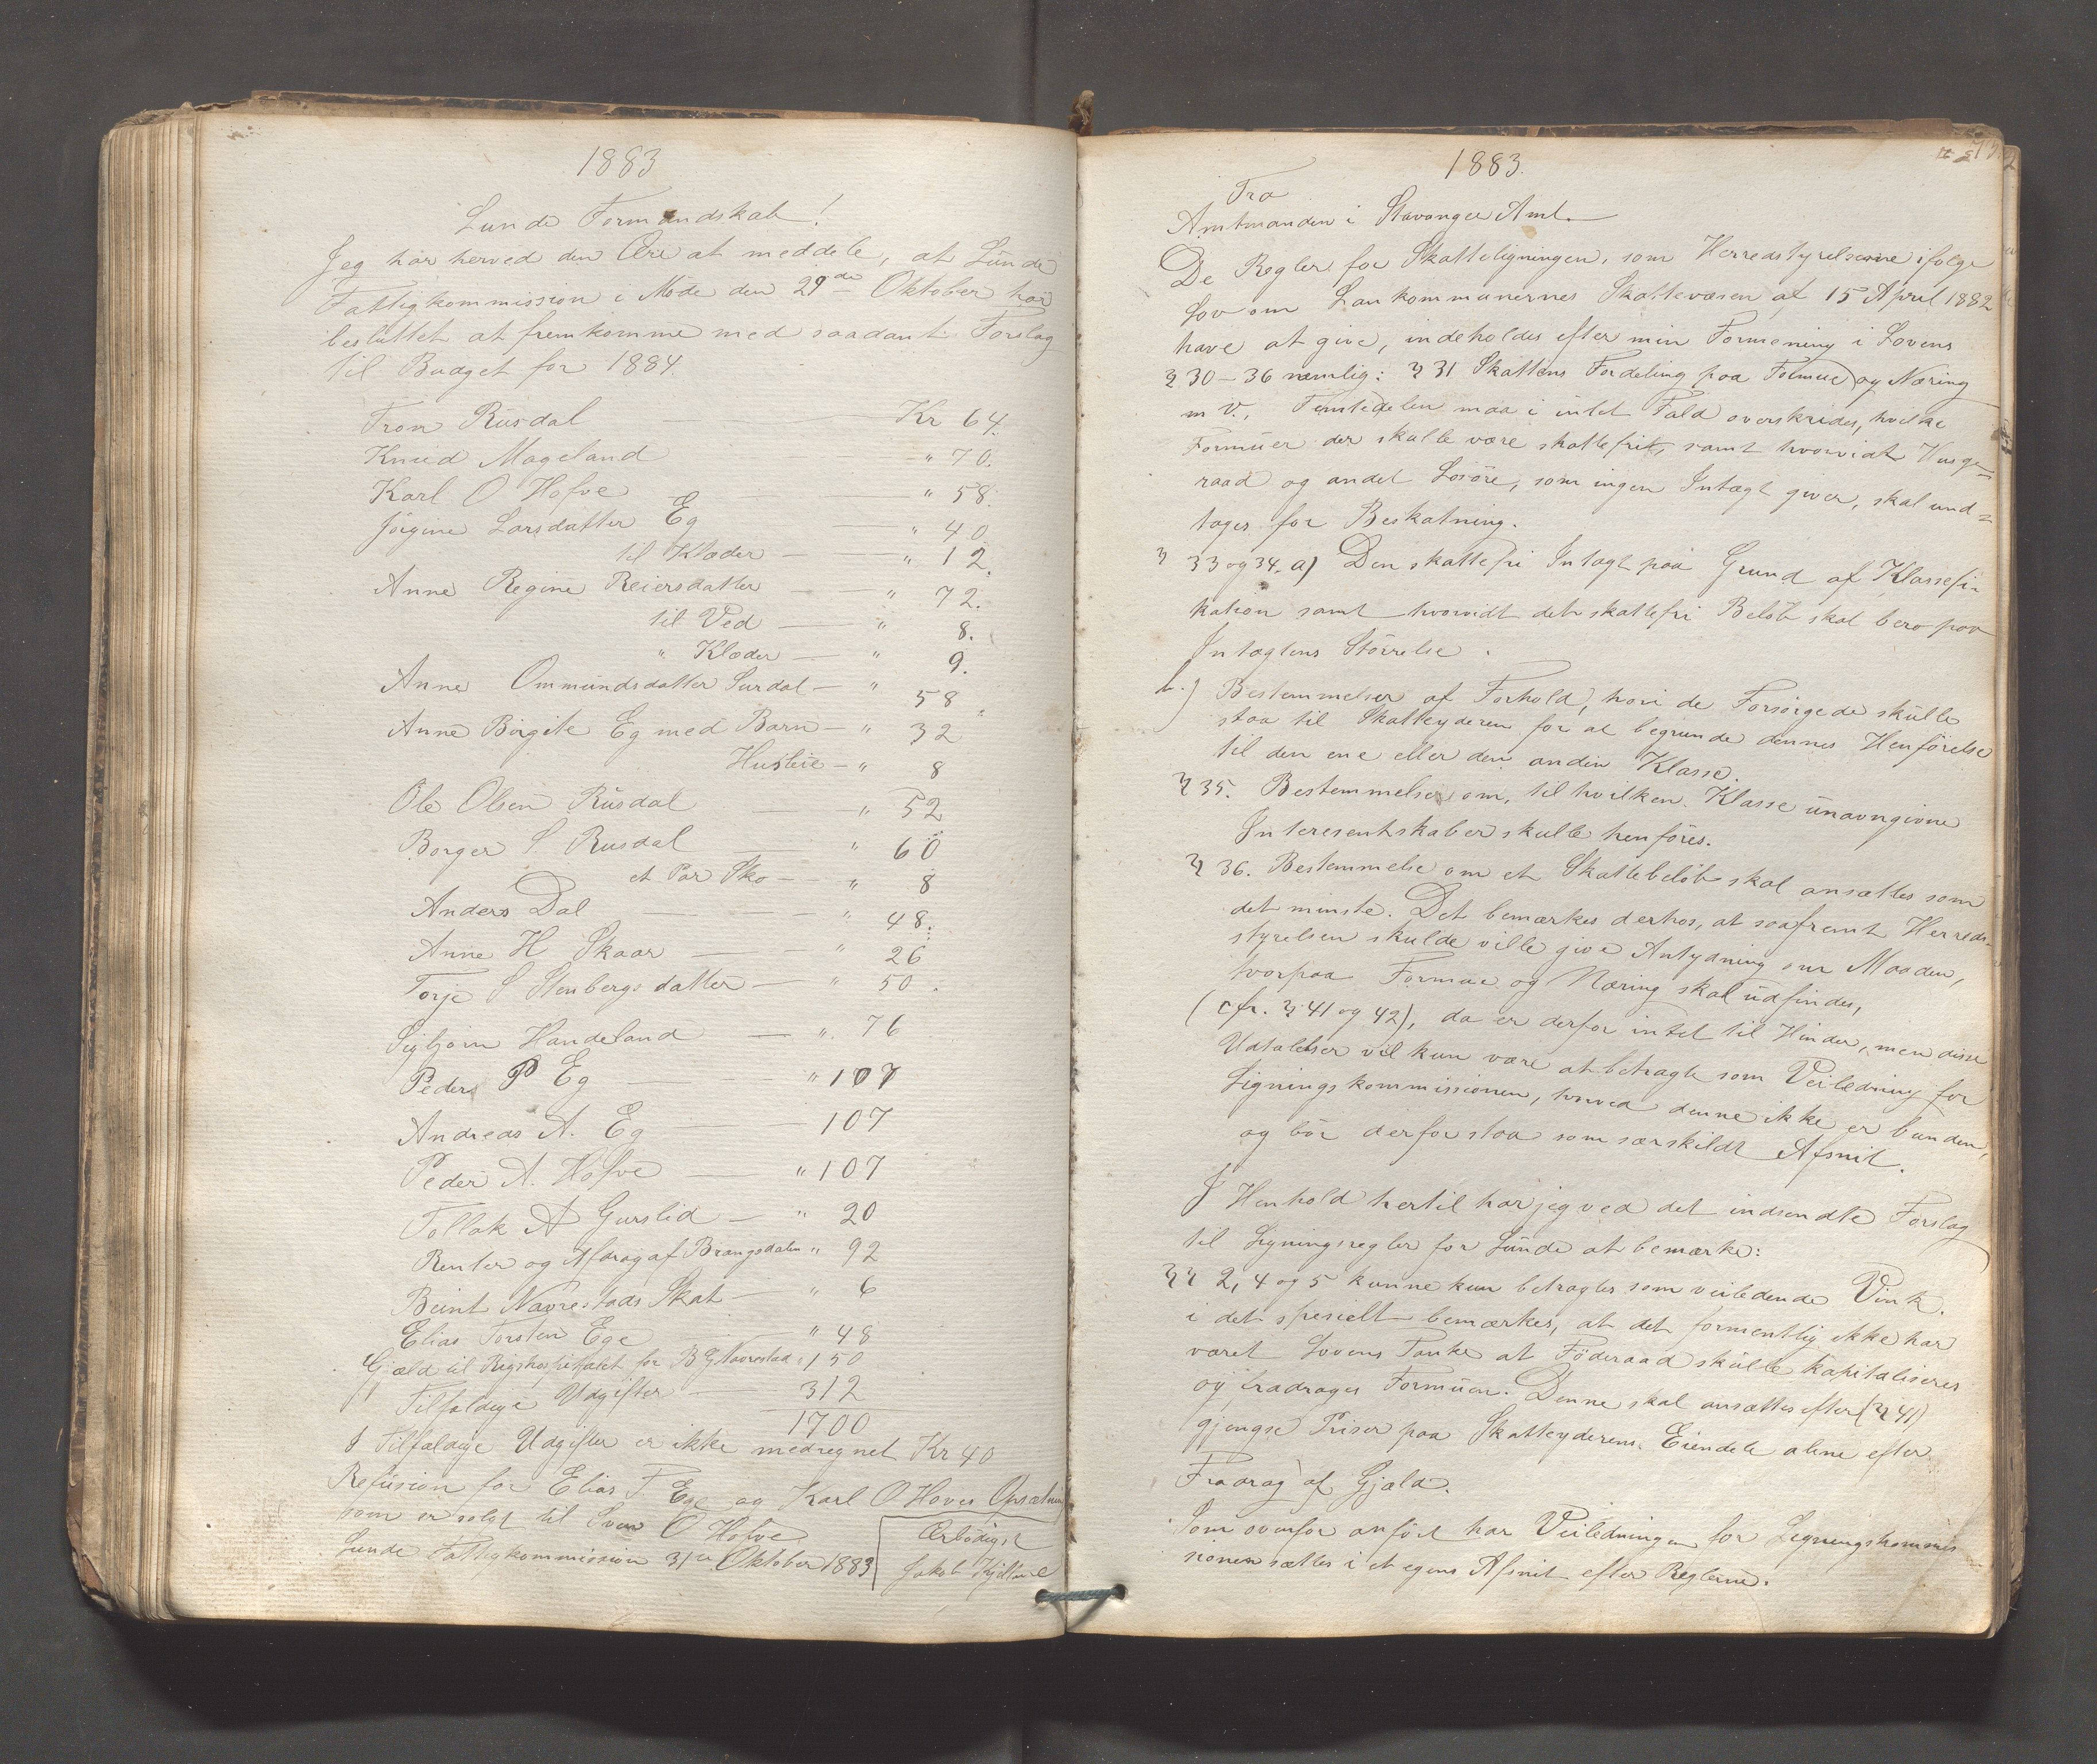 1883
Lunde Formandskab!
Jeg har herved den Ære at meddele, at Lunde
Fattigkommission i Møde den 29de Oktober har
besluttet at fremkomme med saadant Forslag
til Budget for 1884.
Tron Rusdal — Kr 64.
Knud Mageland — " 70.
Karl O Hofve — " 58.
Jørgine Larsdatter Eg — " 40
til Klæder — " 12.
Anne Regine Reiersdatter — " 72.
til Ved — " 8.
" Klæder — " 9.
Anne Ommundsdatter Surdal — " 58
Anne Birgite Eg med Barn — " 32
Husleie — " 8
Ole Olsen Rusdal — " 52
Borger S Rusdal — " 60
et Par Sko — " 8
Anders Dal — " 48.
Anne H Skaar — " 26
Torje S Stenbergsdatter — " 50.
Sigbjørn Handeland — " 76
Peder P Eg — " 107
Andreas A. Eg — 107
Peder A. Hofve — " 107
Tollak A Gurslid — " 20
Renter og Afdrag af Brangsdalen " 92
Beint Navrestads Skat — " 6
Elias Torsten Ege " 48
Gjæld til Rigshospitalet for B G Navrestad " 150
Tilfældige Udgifter — 312
1700
I Tilfældige Udgifter er ikke medregnet Kr 40
Refusion for Elias T Ege og Karl O Hoves Opsætning
som er solgt til Sven O Hofve
Lunde Fattigkommission 31te Oktober 1883
Ærbødigst
Jakob
1883.
Fra
Amtmanden i Stavanger Amt.
De Regler for Skatteligningen, som Herredstyrelserne ifølge
Lov om Lankommunernes Skattevæsen af 15 April 1882
have at give, indeholdes efter min Formening i Lovens
§ 30–36 nemlig: § 31 Skattens Fordeling paa Formue og Næring
m v., Femtedelen maa i intet Fald overskrides, hvilke
Formuer der skulle være skattefrit, samt hvorvidt Husge-
raad og andet Løsøre, som ingen Intægt giver, skal und-
tages for Beskatning.
§ 33 og 34. a) Den skattefri Intægt paa Grund af Klassefi-
kation samt hvorvidt det skattefri Beløb skal bero paa
Intægtens Størrelse.
b.) Bestemmelser af Forhold, hvori de Forsørgede skulle
staa til Skatteyderen for at begrunde dennes Henførelse
til den ene eller den anden Klasse.
§ 35. Bestemmelse om, til hvilken Klasse unavngivne
Interesentskaber skulle henføres.
§ 36. Bestemmelse om et Skattebeløb skal ansættes som
det minste. Det bemærkes derhos, at saafremt Herreds-
styrelsen skulde ville give Antydning om Maaden,
hvorpaa Formue og Næring skal udfindes,
(cfr. § 41 og 42), da er derfor intet til Hinder, men disse
Udtalelser vil kun være at betragte som Veiledning for
Ligningskommissionen, hvorved denne ikke er bunden,
og bør derfor staa som særskildt Afsnit.
I Henhold hertil har jeg ved det indsendte Forslag
til Ligningsregler for Lunde at bemærke:
§§ 2, 4 og 5 kunne kun betragtes som veiledende Vink.
i det spesielt bemærkes, at det formentlig ikke har
været Lovens Tanke at Føderaad skulle kapitaliseres
og fradrages Formuen. Denne skal ansættes efter (§ 41)
gjengse Priser paa Skatteyderens Eiendele alene efter
Fradrag af Gjæld.
Som ovenfor anført bør Veiledningen for Ligningskommis
sionen sættes i et egent Afsnit efter Reglerne.